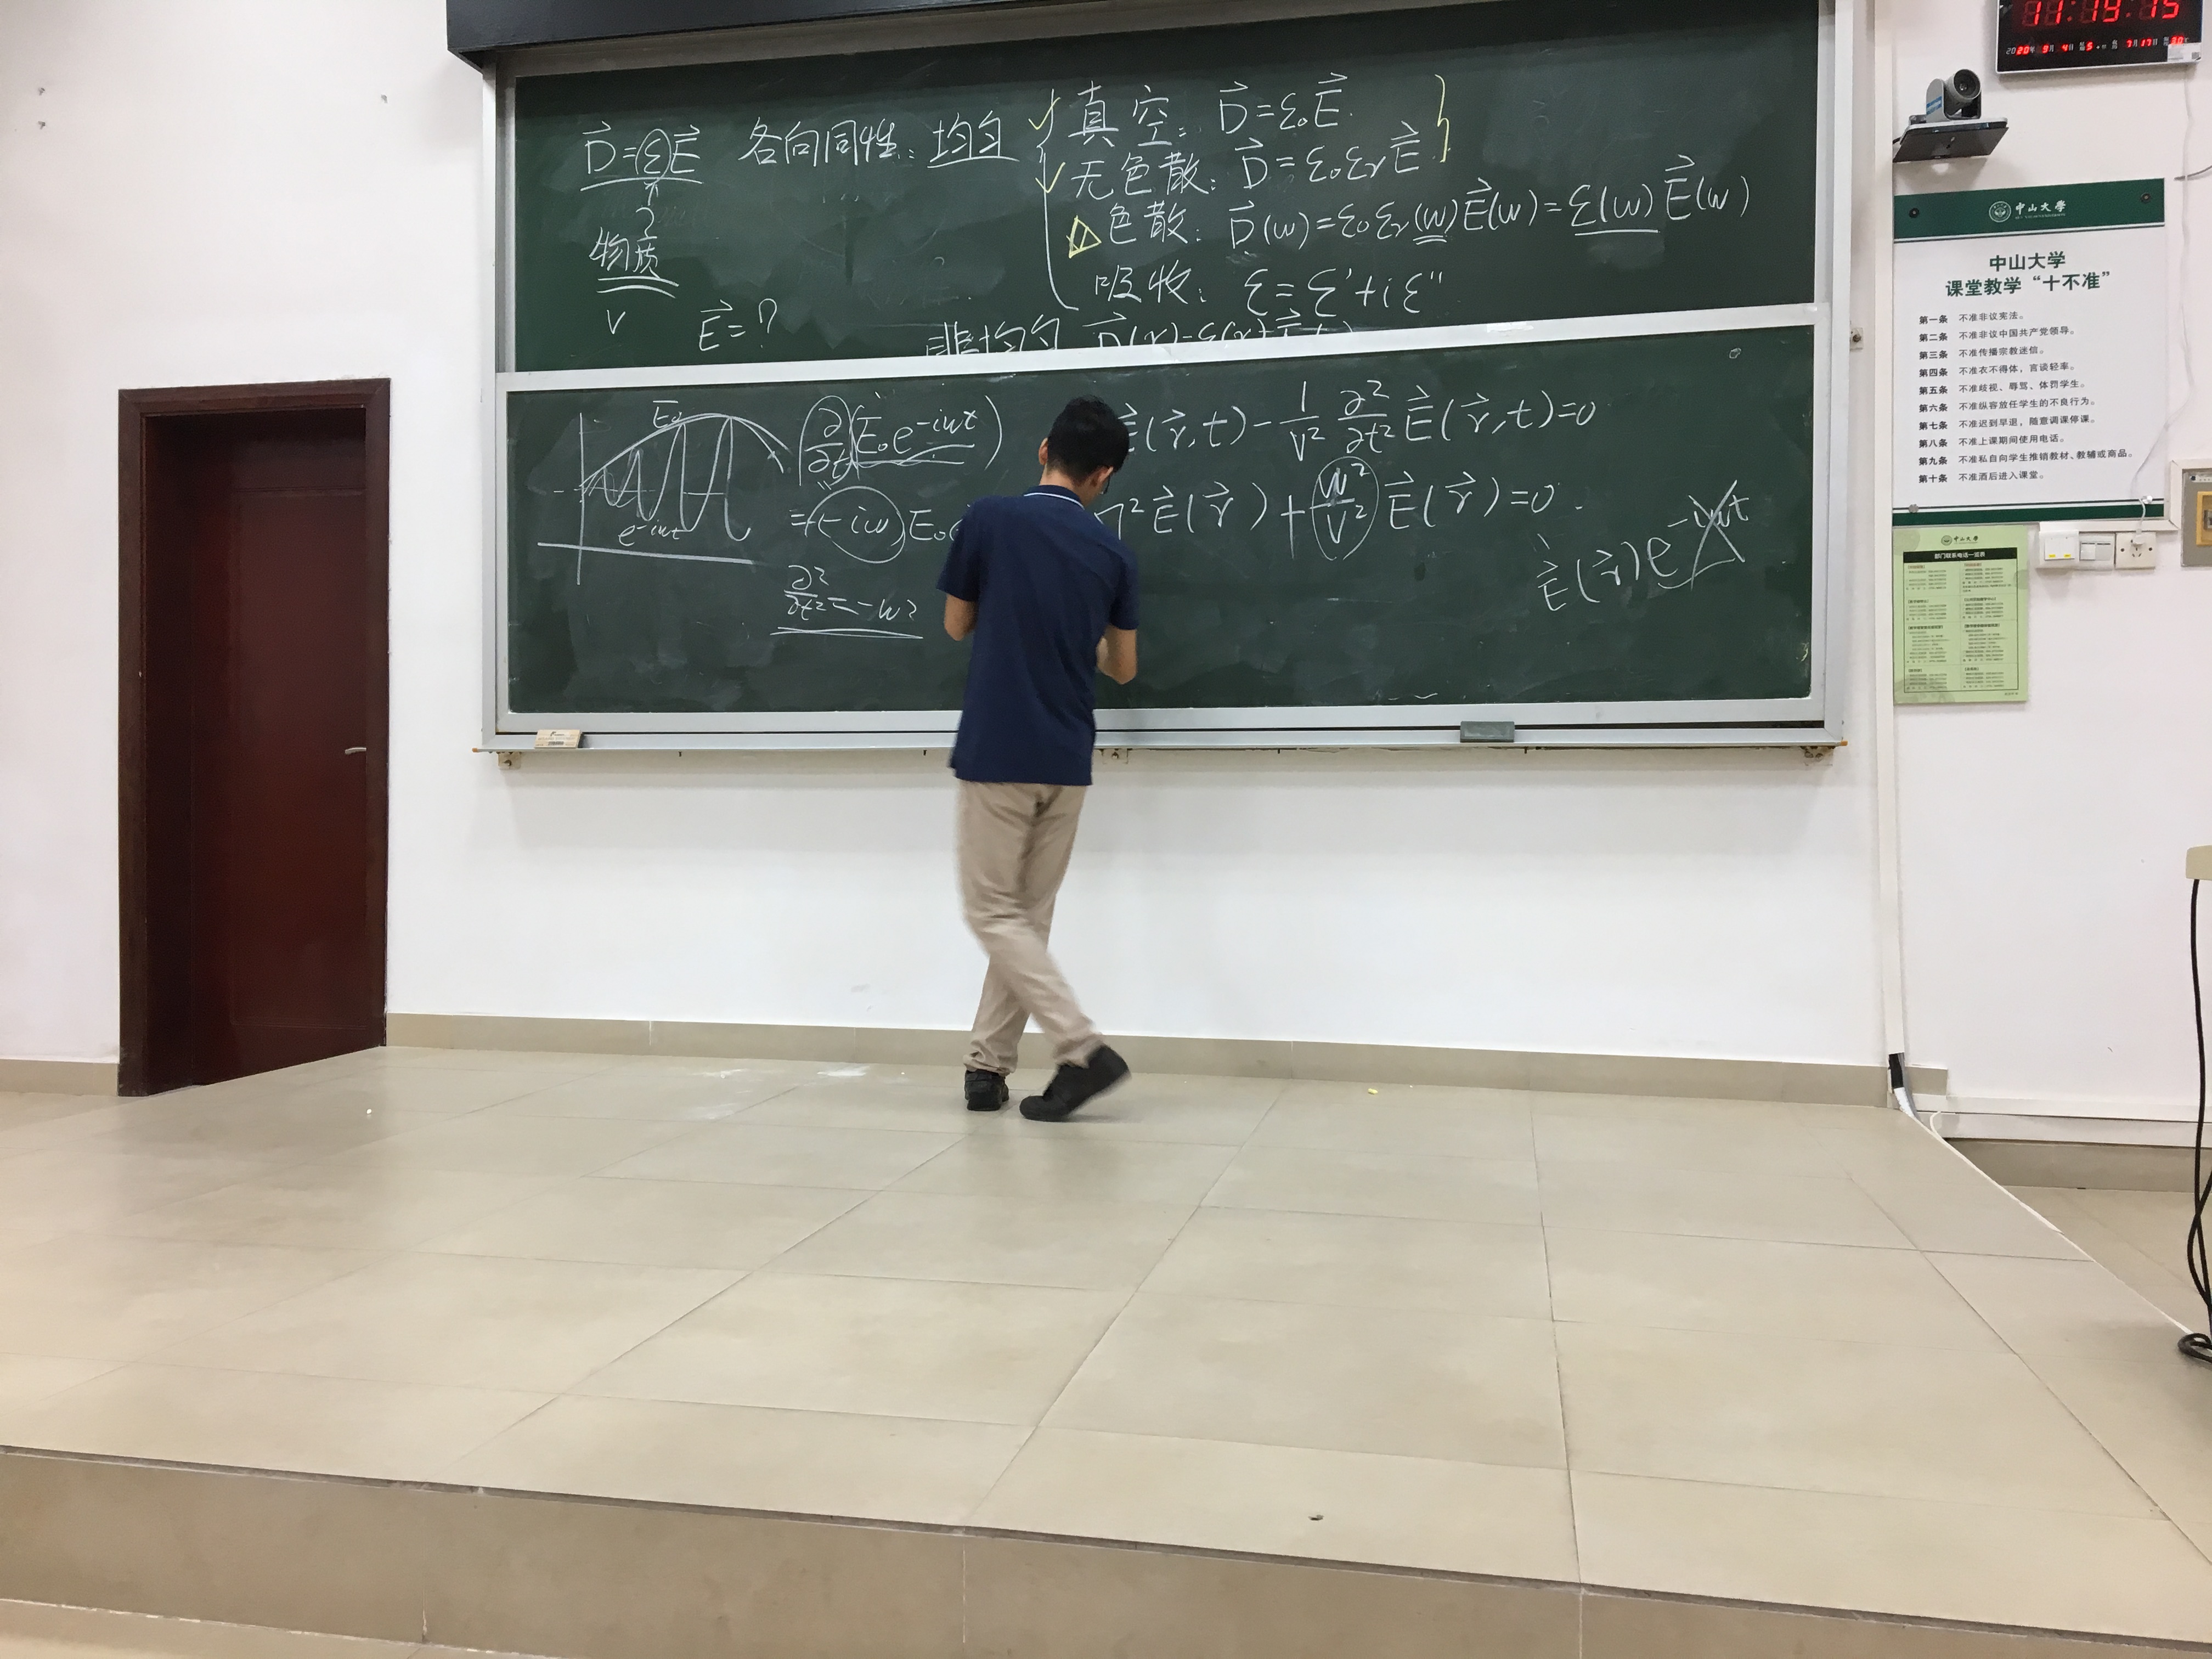 11:19:15
2020年 9月 4日
D⃗=εE⃗ 各向同性: 均匀
真空: D⃗=ε₀E⃗.
无色散: D⃗=ε₀εᵣE⃗
色散: D⃗(w)=ε₀εᵣ(w)E⃗(w)=ε(w)E⃗(w)
吸收: ε=ε'+iε''
?
物质
v
E⃗=?
非均匀
E₀
e^-iwt
∂/∂t(E₀e^-iwt)
=(-iw)E₀
∂²/∂t²=-w²
E⃗(r⃗,t)-1/v² ∂²/∂t² E⃗(r⃗,t)=0
∇²E⃗(r⃗)+w²/v² E⃗(r⃗)=0.
E⃗(r⃗)e^-iwt
中山大学
中山大学
课堂教学“十不准”
第一条 不准非议宪法。
第二条 不准非议中国共产党领导。
第三条 不准传播宗教迷信。
第四条 不准衣不得体,言谈轻率。
第五条 不准歧视、辱骂、体罚学生。
第六条 不准纵容放任学生的不良行为。
第七条 不准迟到早退,随意调课停课。
第八条 不准上课期间使用电话。
第九条 不准私自向学生推销教材、教辅或商品。
第十条 不准酒后进入课堂。
中山大学
部门联系电话一览表